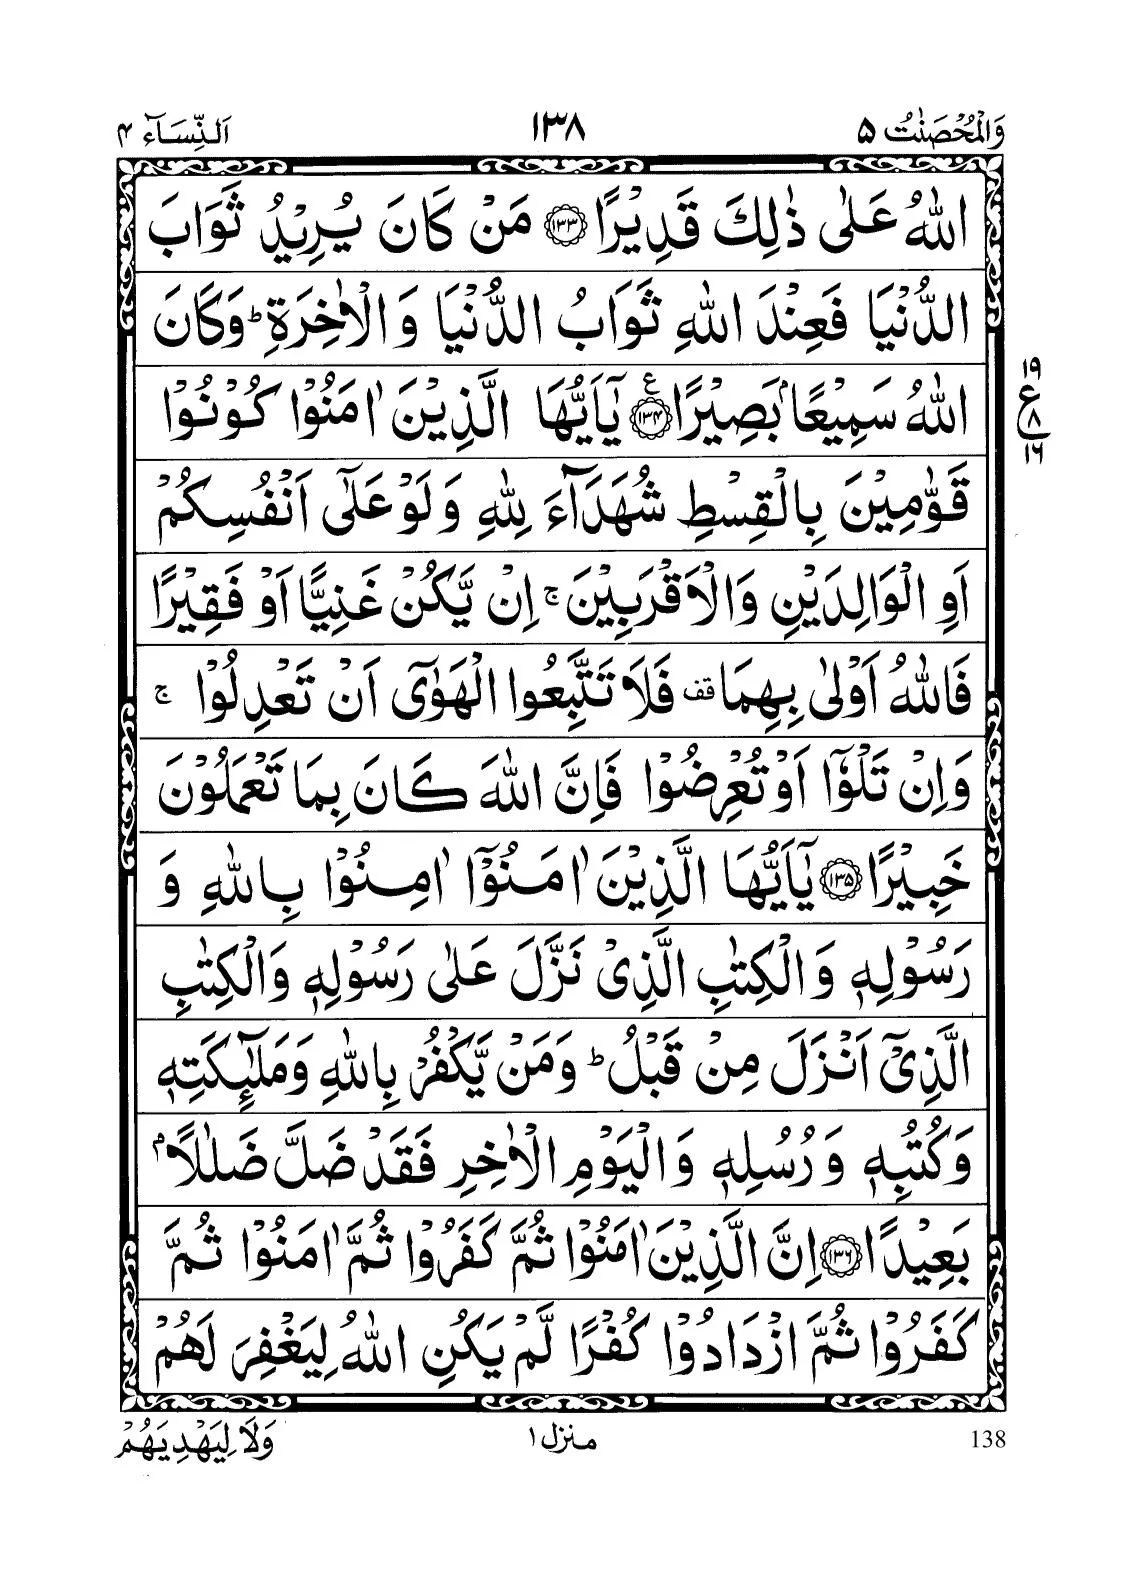 وَالْمُحْصَنٰتُ ۵ ١٣٨ اَلنِّسَآء ۴
اللّٰهُ عَلٰى ذٰلِكَ قَدِيْرًا ۝١٣٣ مَنْ كَانَ يُرِيْدُ ثَوَابَ
الدُّنْيَا فَعِنْدَ اللّٰهِ ثَوَابُ الدُّنْيَا وَ الْاٰخِرَةِ ؕ وَكَانَ
اللّٰهُ سَمِيْعًۢا بَصِيْرًا ۝١٣۴ ع يٰۤاَيُّهَا الَّذِيْنَ اٰمَنُوْا كُوْنُوْا
١٩
ع
٨
١٦
قَوّٰمِيْنَ بِالْقِسْطِ شُهَدَآءَ لِلّٰهِ وَ لَوْ عَلٰۤى اَنْفُسِكُمْ
اَوِ الْوَالِدَيْنِ وَالْاَقْرَبِيْنَ ۚ اِنْ يَّكُنْ غَنِيًّا اَوْ فَقِيْرًا
فَاللّٰهُ اَوْلٰى بِهِمَا قف فَلَا تَتَّبِعُوا الْهَوٰۤى اَنْ تَعْدِلُوْا ۚ
وَاِنْ تَلْوٗۤا اَوْ تُعْرِضُوْا فَاِنَّ اللّٰهَ كَانَ بِمَا تَعْمَلُوْنَ
خَبِيْرًا ۝١٣۵ يٰۤاَيُّهَا الَّذِيْنَ اٰمَنُوْۤا اٰمِنُوْا بِاللّٰهِ وَ
رَسُوْلِهٖ وَالْكِتٰبِ الَّذِىْ نَزَّلَ عَلٰى رَسُوْلِهٖ وَالْكِتٰبِ
الَّذِىْۤ اَنْزَلَ مِنْ قَبْلُ ؕ وَمَنْ يَّكْفُرْ بِاللّٰهِ وَمَلٰٓئِكَتِهٖ
وَكُتُبِهٖ وَرُسُلِهٖ وَالْيَوْمِ الْاٰخِرِ فَقَدْ ضَلَّ ضَلٰلًاۢ
بَعِيْدًا ۝١٣٦ اِنَّ الَّذِيْنَ اٰمَنُوْا ثُمَّ كَفَرُوْا ثُمَّ اٰمَنُوْا ثُمَّ
كَفَرُوْا ثُمَّ ازْدَادُوْا كُفْرًا لَّمْ يَكُنِ اللّٰهُ لِيَغْفِرَ لَهُمْ
138 منزل ١ وَلَا لِيَهْدِيَهُمْ